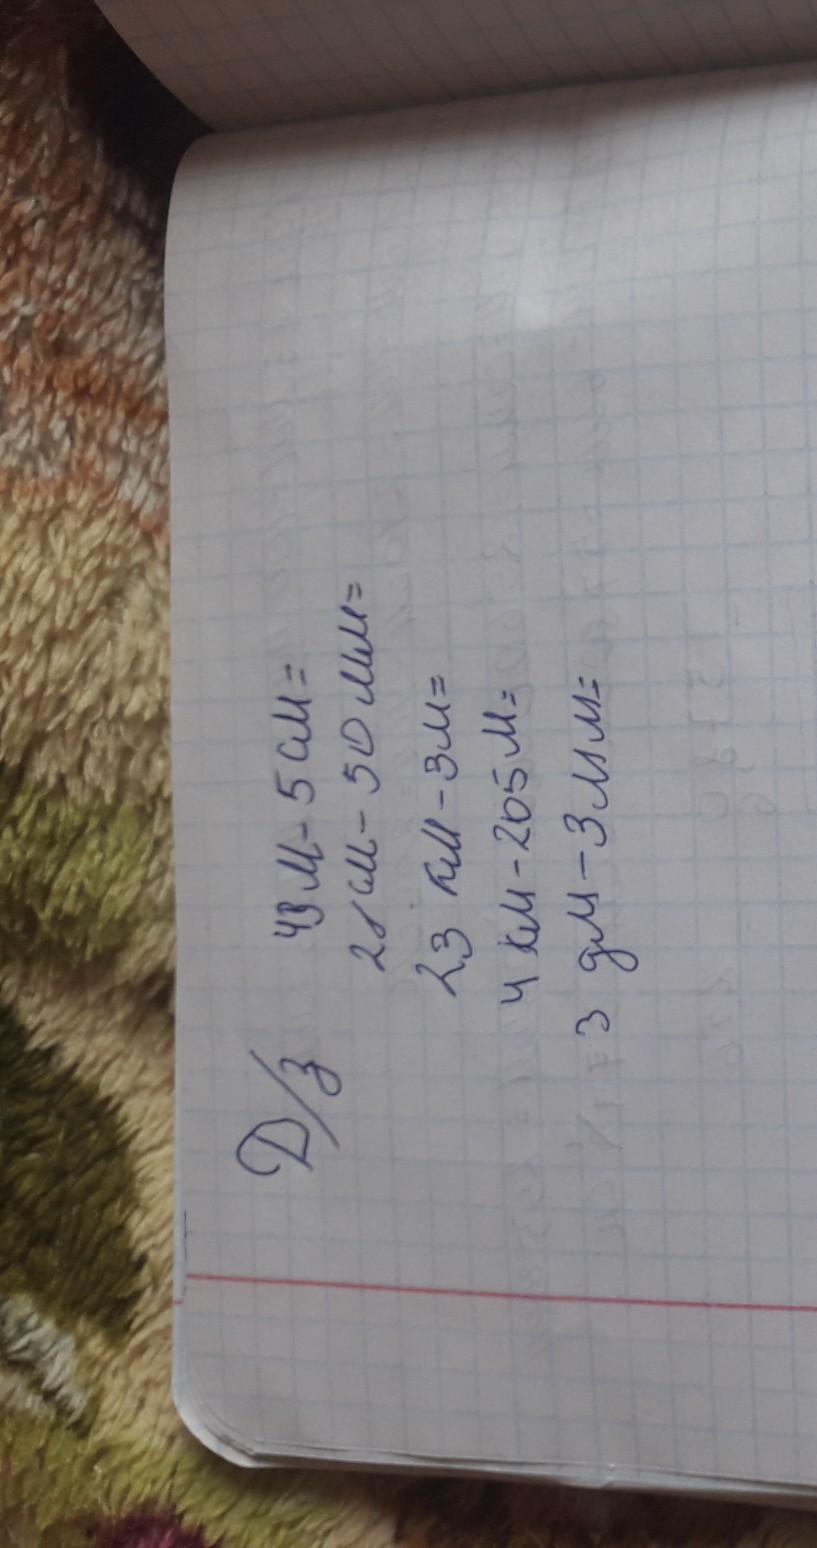 Д/з
43 м - 5 см =
28 см - 50 мм =
23 км - 3 м =
4 км - 205 м =
3 дм - 3 мм =